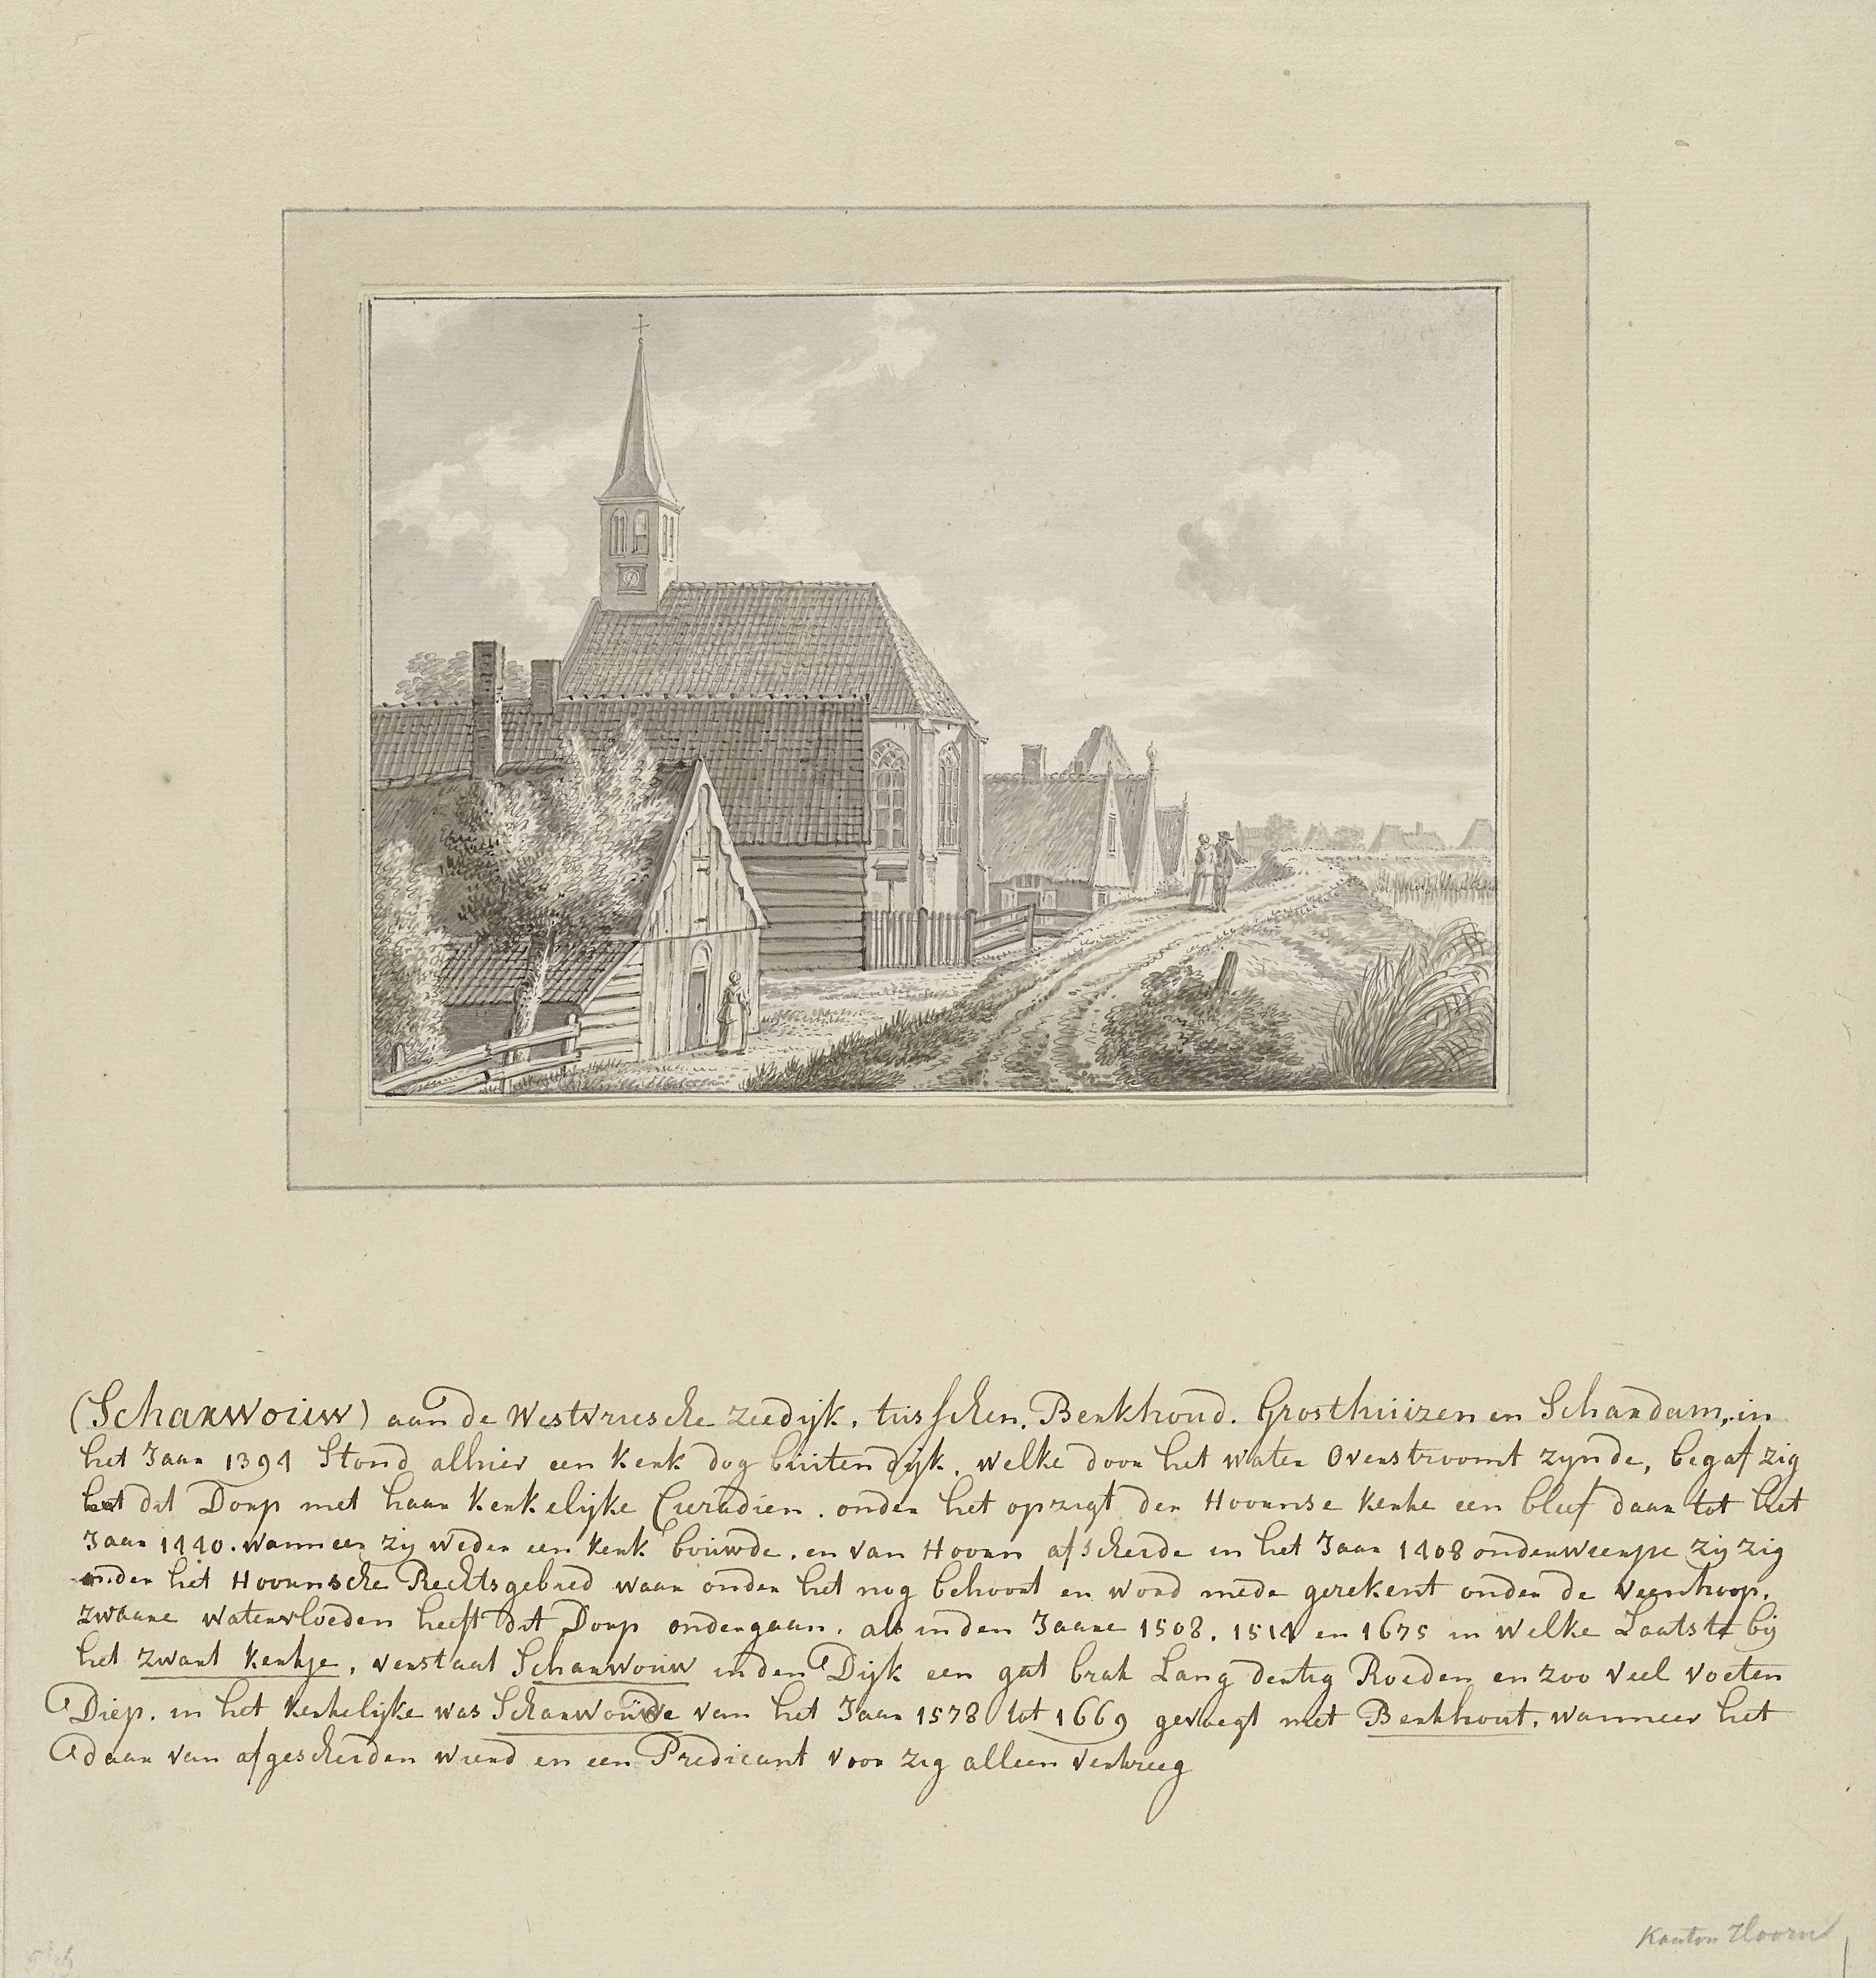 (Scharwouw) aan de Westvriesche Zeedijk, tusschen, Berkhoud. Grosthuizen en Schardam, in
het Jaar 1394 Stond alhier een Kerk dog buiten dijk, welke door het water Overstroomt zynde, begaf zig
het dit Dorp met haar Kerkelijke onder het opzigt der Hoornse Kerke een bleef daar tot het
Jaar 1440. wanneer zij weder een Kerk bouwde, en van Hoorn afscheide in het Jaar 1408 onderweerpe zij zig
onder het Hoornsche Rechtsgebied waar onder het nog behoort en word mede gerekent onder de Veenhoop,
zwaare watervloeden heeft dit Dorp ondergaan, als in den Jaare 1508. 1514 en 1675 in welke Laatste bij
het zwart Kerkje, verstaat Scharwouw in den Dijk een gat brak Lang dertig Roeden en zoo veel voeten
Diep. in het Kerkelijke was Scharwoude van het Jaar 1578 tot 1669 gevoegt met Berkhout, wanneer het
daar van afgescheiden wierd en een Predicant voor zig alleen verkreeg
Kanton Hoorn